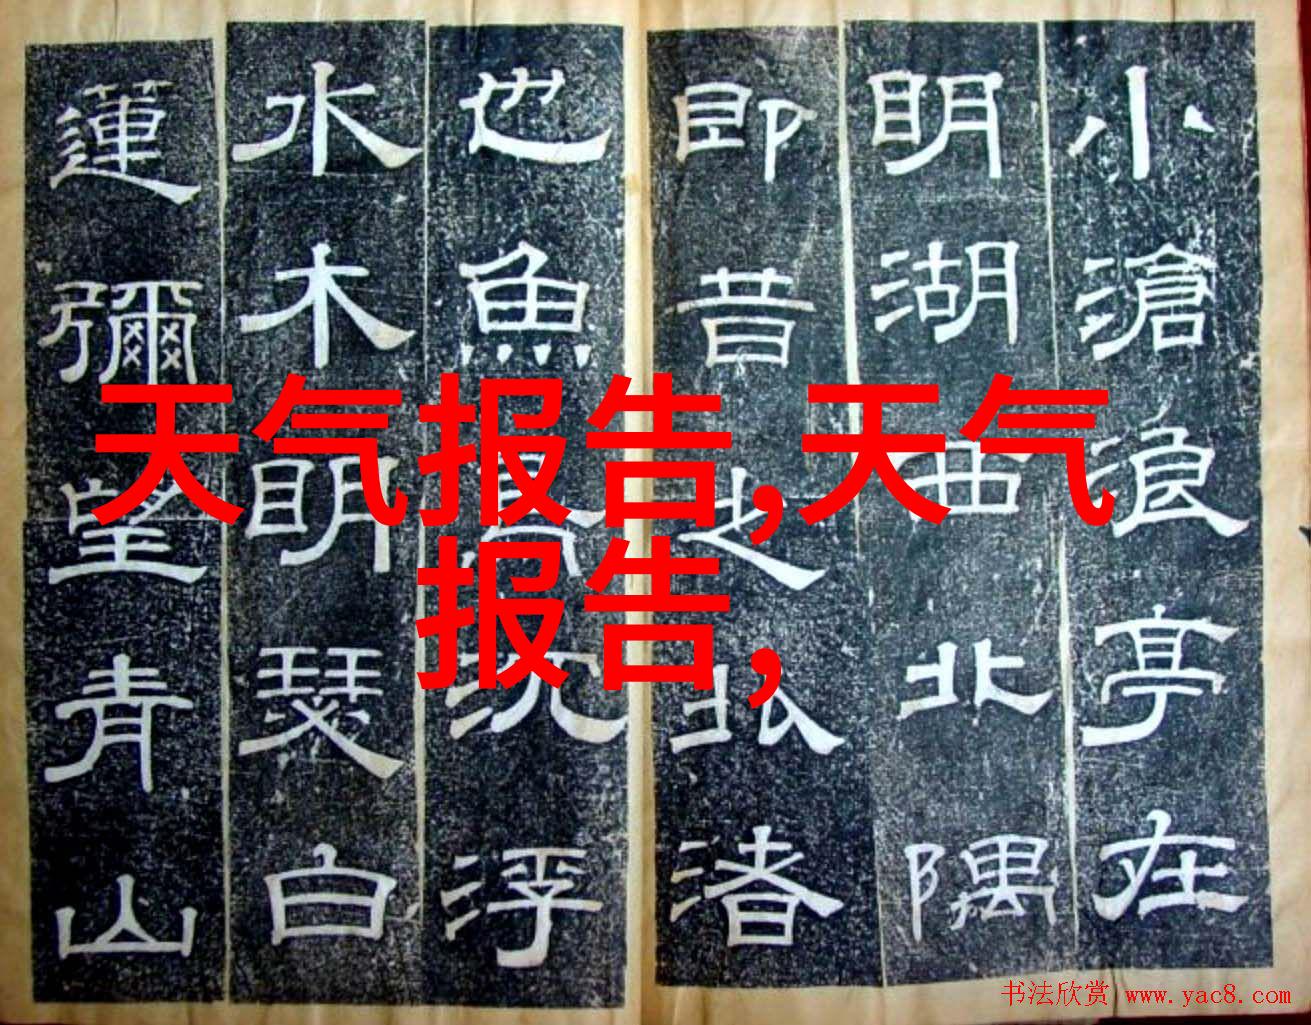 小滄浪亭在
明湖西北隅
即昔之北渚
也魚鳥沉浮
水木明瑟白
蓮彌望青山
天气报告,天气
报告,
书法欣赏 www.yac8.com